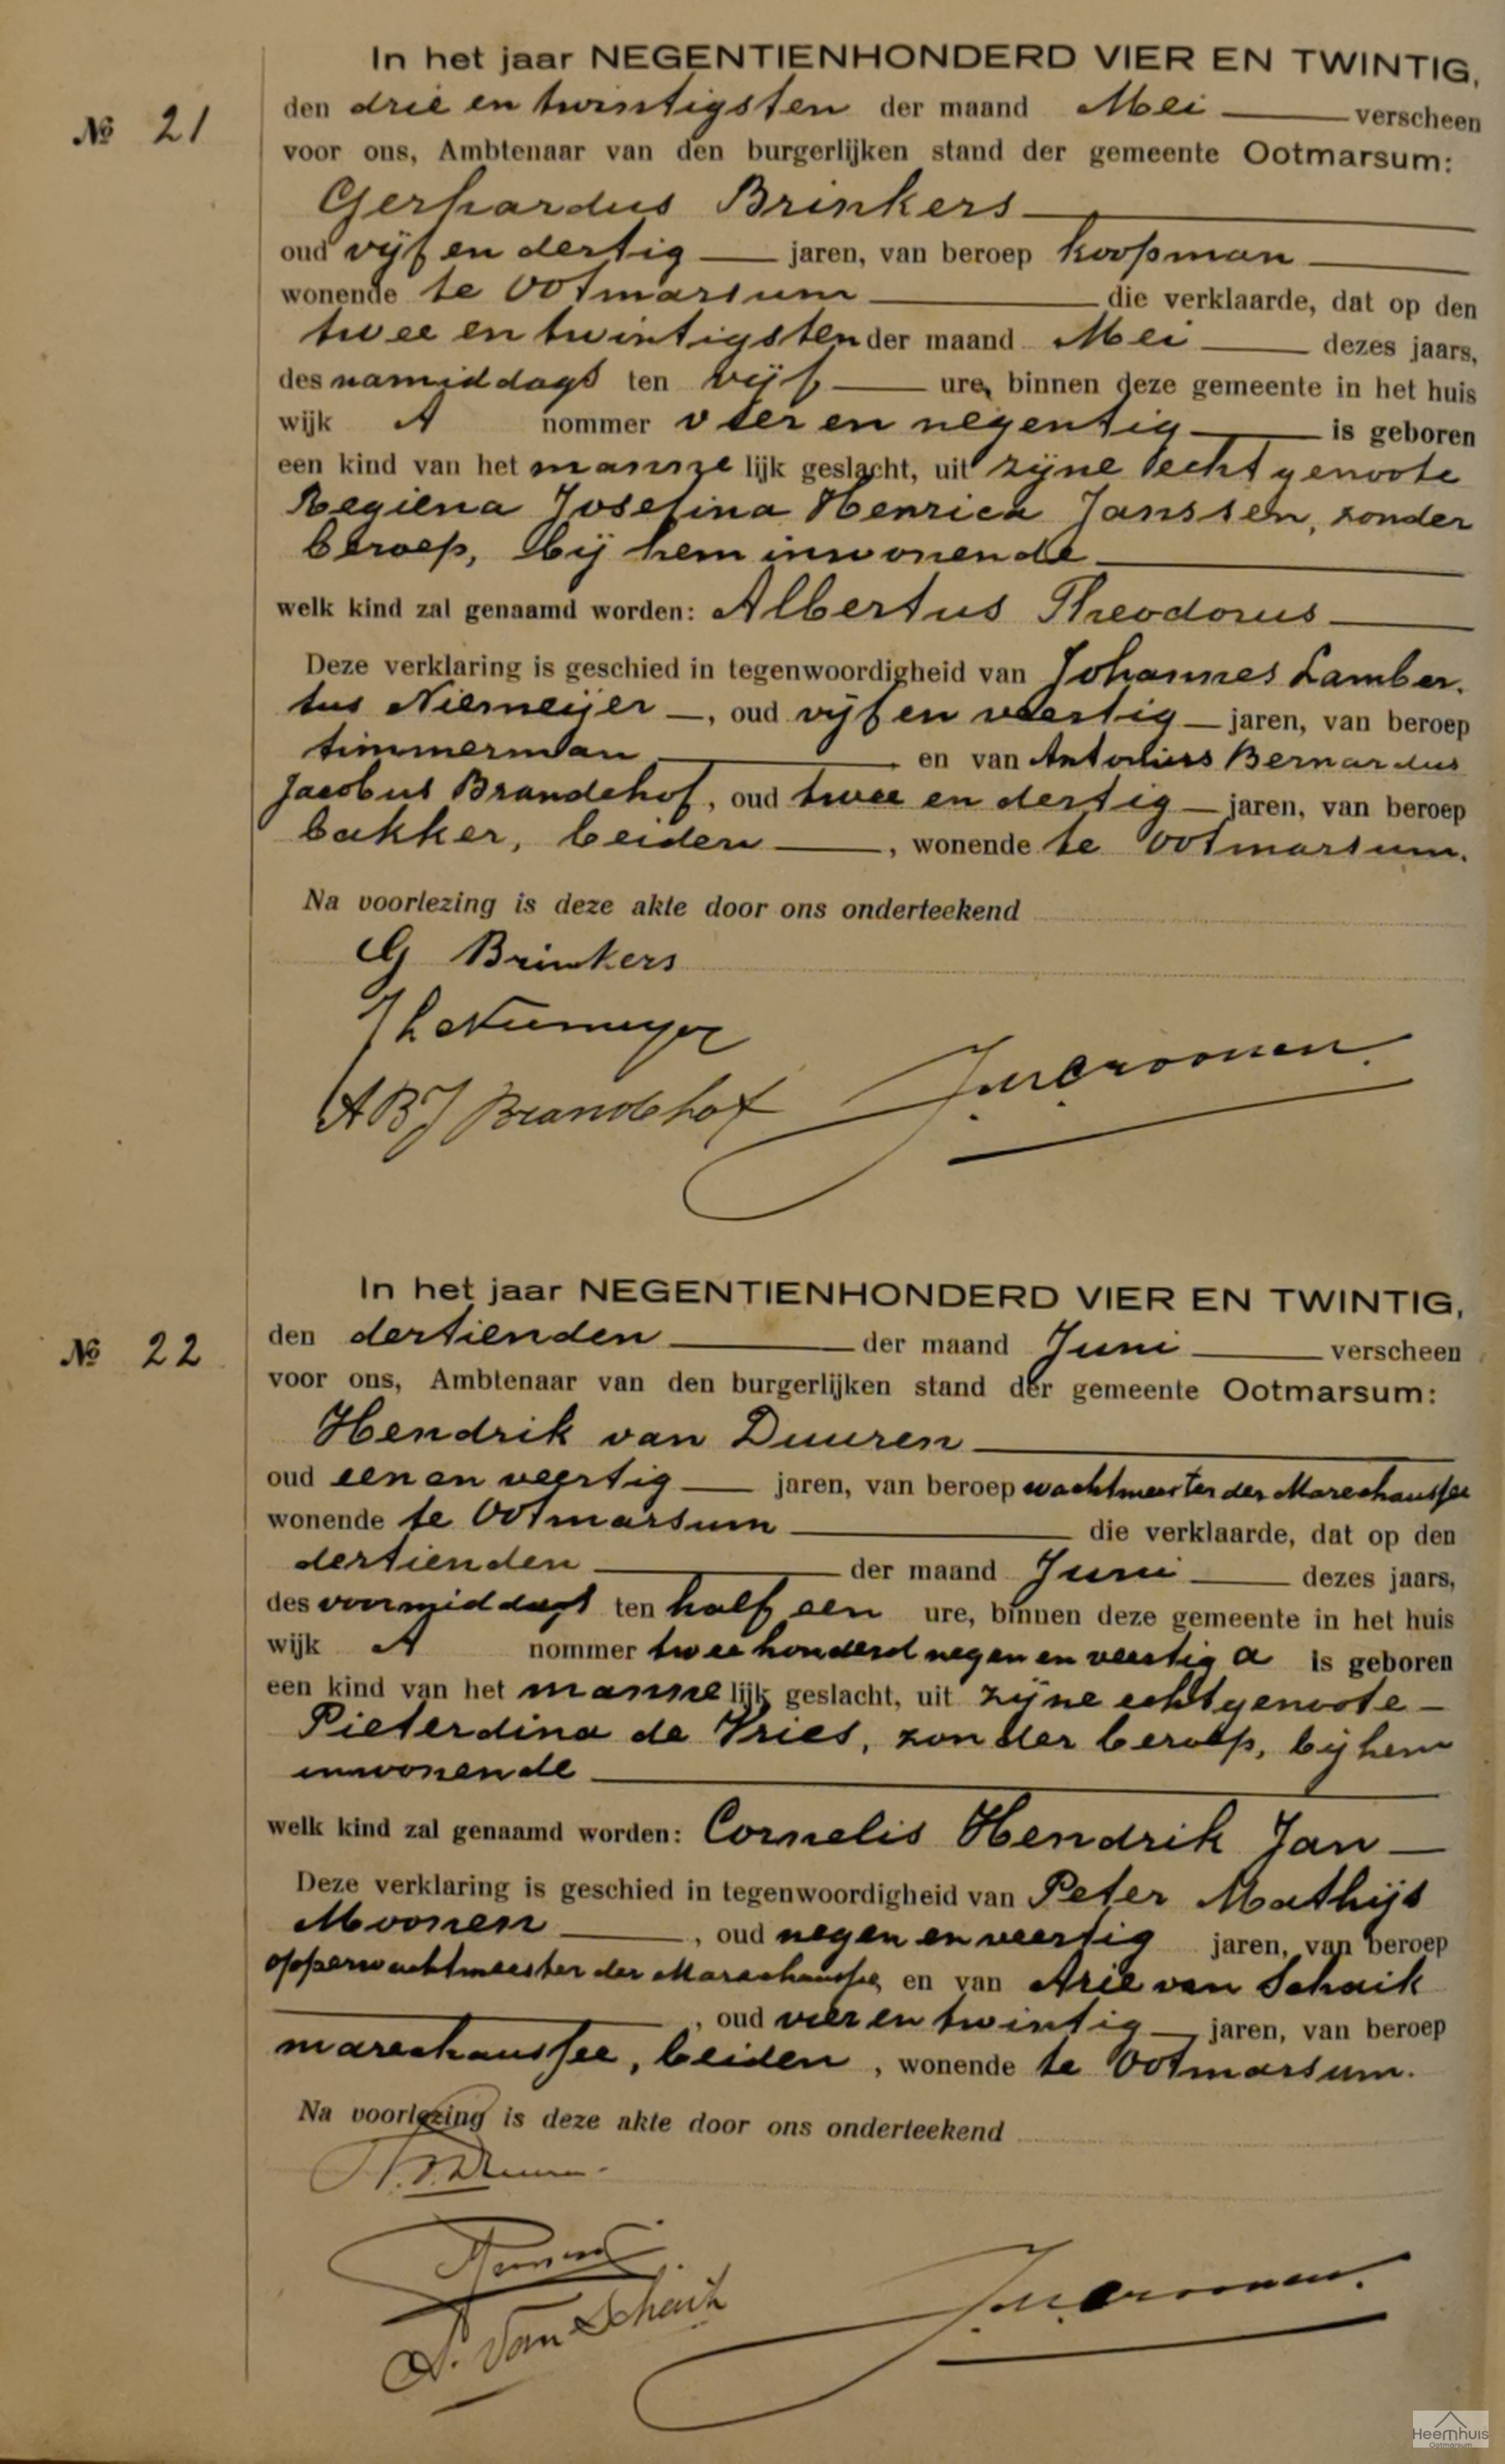 In het jaar NEGENTIENHONDERD VIER EN TWINTIG,
№ 21
den drie en twintigsten der maand Mei verscheen
voor ons, Ambtenaar van den burgerlijken stand der gemeente Ootmarsum:
Gerhardus Brinkers
oud vijf en dertig jaren, van beroep koopman
wonende te Ootmarsum die verklaarde, dat op den
twee en twintigsten der maand Mei dezes jaars,
des namiddags ten vijf ure, binnen deze gemeente in het huis
wijk A nommer vier en negentig is geboren
een kind van het mannelijk geslacht, uit zijne echtgenoote
Regiena Josefina Henrica Janssen, zonder
beroep, bij hem inwonende
welk kind zal genaamd worden: Albertus Theodorus
Deze verklaring is geschied in tegenwoordigheid van Johannes Lamber-
tus Niemeijer, oud vijf en veertig jaren, van beroep
timmerman en van Antonius Bernardus
Jacobus Brandehof, oud twee en dertig jaren, van beroep
bakker, beiden, wonende te Ootmarsum.
Na voorlezing is deze akte door ons onderteekend
G Brinkers
J L Niemeyer
A B J Brandehof
In het jaar NEGENTIENHONDERD VIER EN TWINTIG,
№ 22
den dertienden der maand Juni verscheen
voor ons, Ambtenaar van den burgerlijken stand der gemeente Ootmarsum:
Hendrik van Duuren
oud een en veertig jaren, van beroep wachtmeester der Marechaussee
wonende te Ootmarsum die verklaarde, dat op den
dertienden der maand Juni dezes jaars,
des voormiddags ten half een ure, binnen deze gemeente in het huis
wijk A nommer twee honderd negen en veertig a is geboren
een kind van het mannelijk geslacht, uit zijne echtgenoote
Pieterdina de Vries, zonder beroep, bij hem
inwonende
welk kind zal genaamd worden: Cornelis Hendrik Jan
Deze verklaring is geschied in tegenwoordigheid van Peter Mathijs
Moonen, oud negen en veertig jaren, van beroep
opperwachtmeester der Marechaussee en van Arie van Schaik
, oud vier en twintig jaren, van beroep
marechaussee, beiden, wonende te Ootmarsum.
Na voorlezing is deze akte door ons onderteekend
A. van Schaik
Heemhuis
Ootmarsum